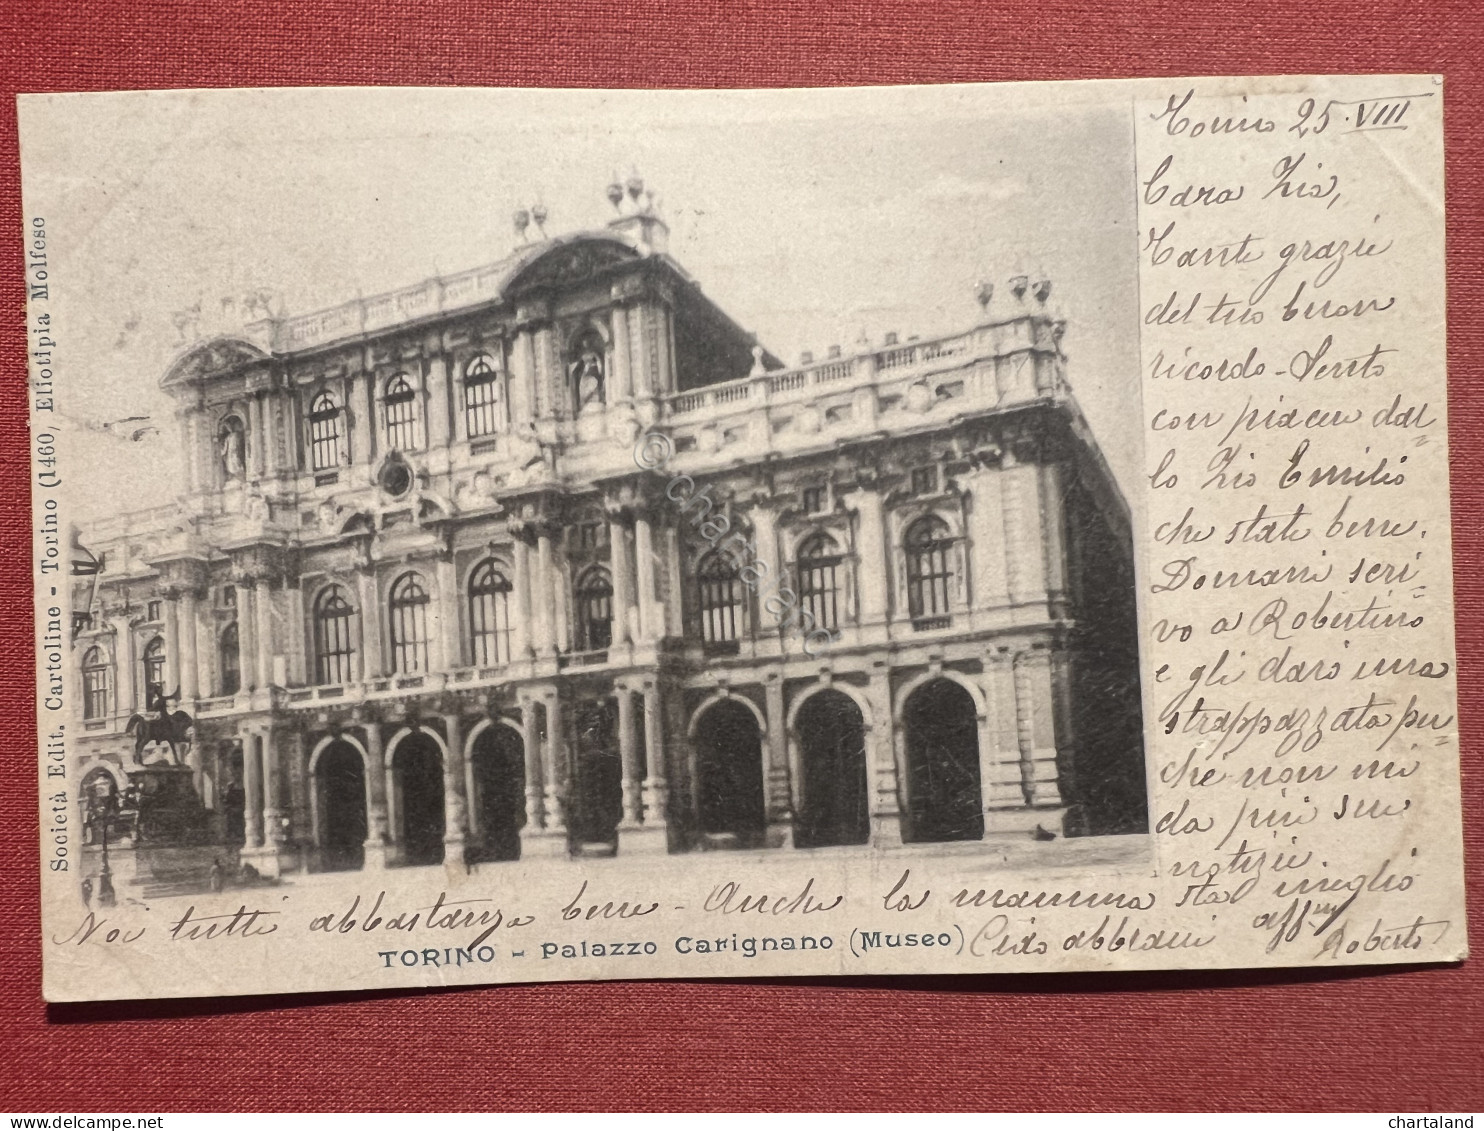 Torino 25. VIII
Cara Zia,
Tante grazie
del tuo buon
ricordo - Sento
con piacere dal-
lo Zio Emilio
che state bene.
Domani scri-
vo a Robertino
e gli darò una
strappazzata per-
chè non mi
da più sue
notizie.
Noi tutti abbastanza bene - Anche la mamma sta meglio
abbracci aff.mo
Roberto
TORINO - Palazzo Carignano (Museo)
Società Edit. Cartoline - Torino (1460, Eliotipia Molfese
© chartaland
chartaland